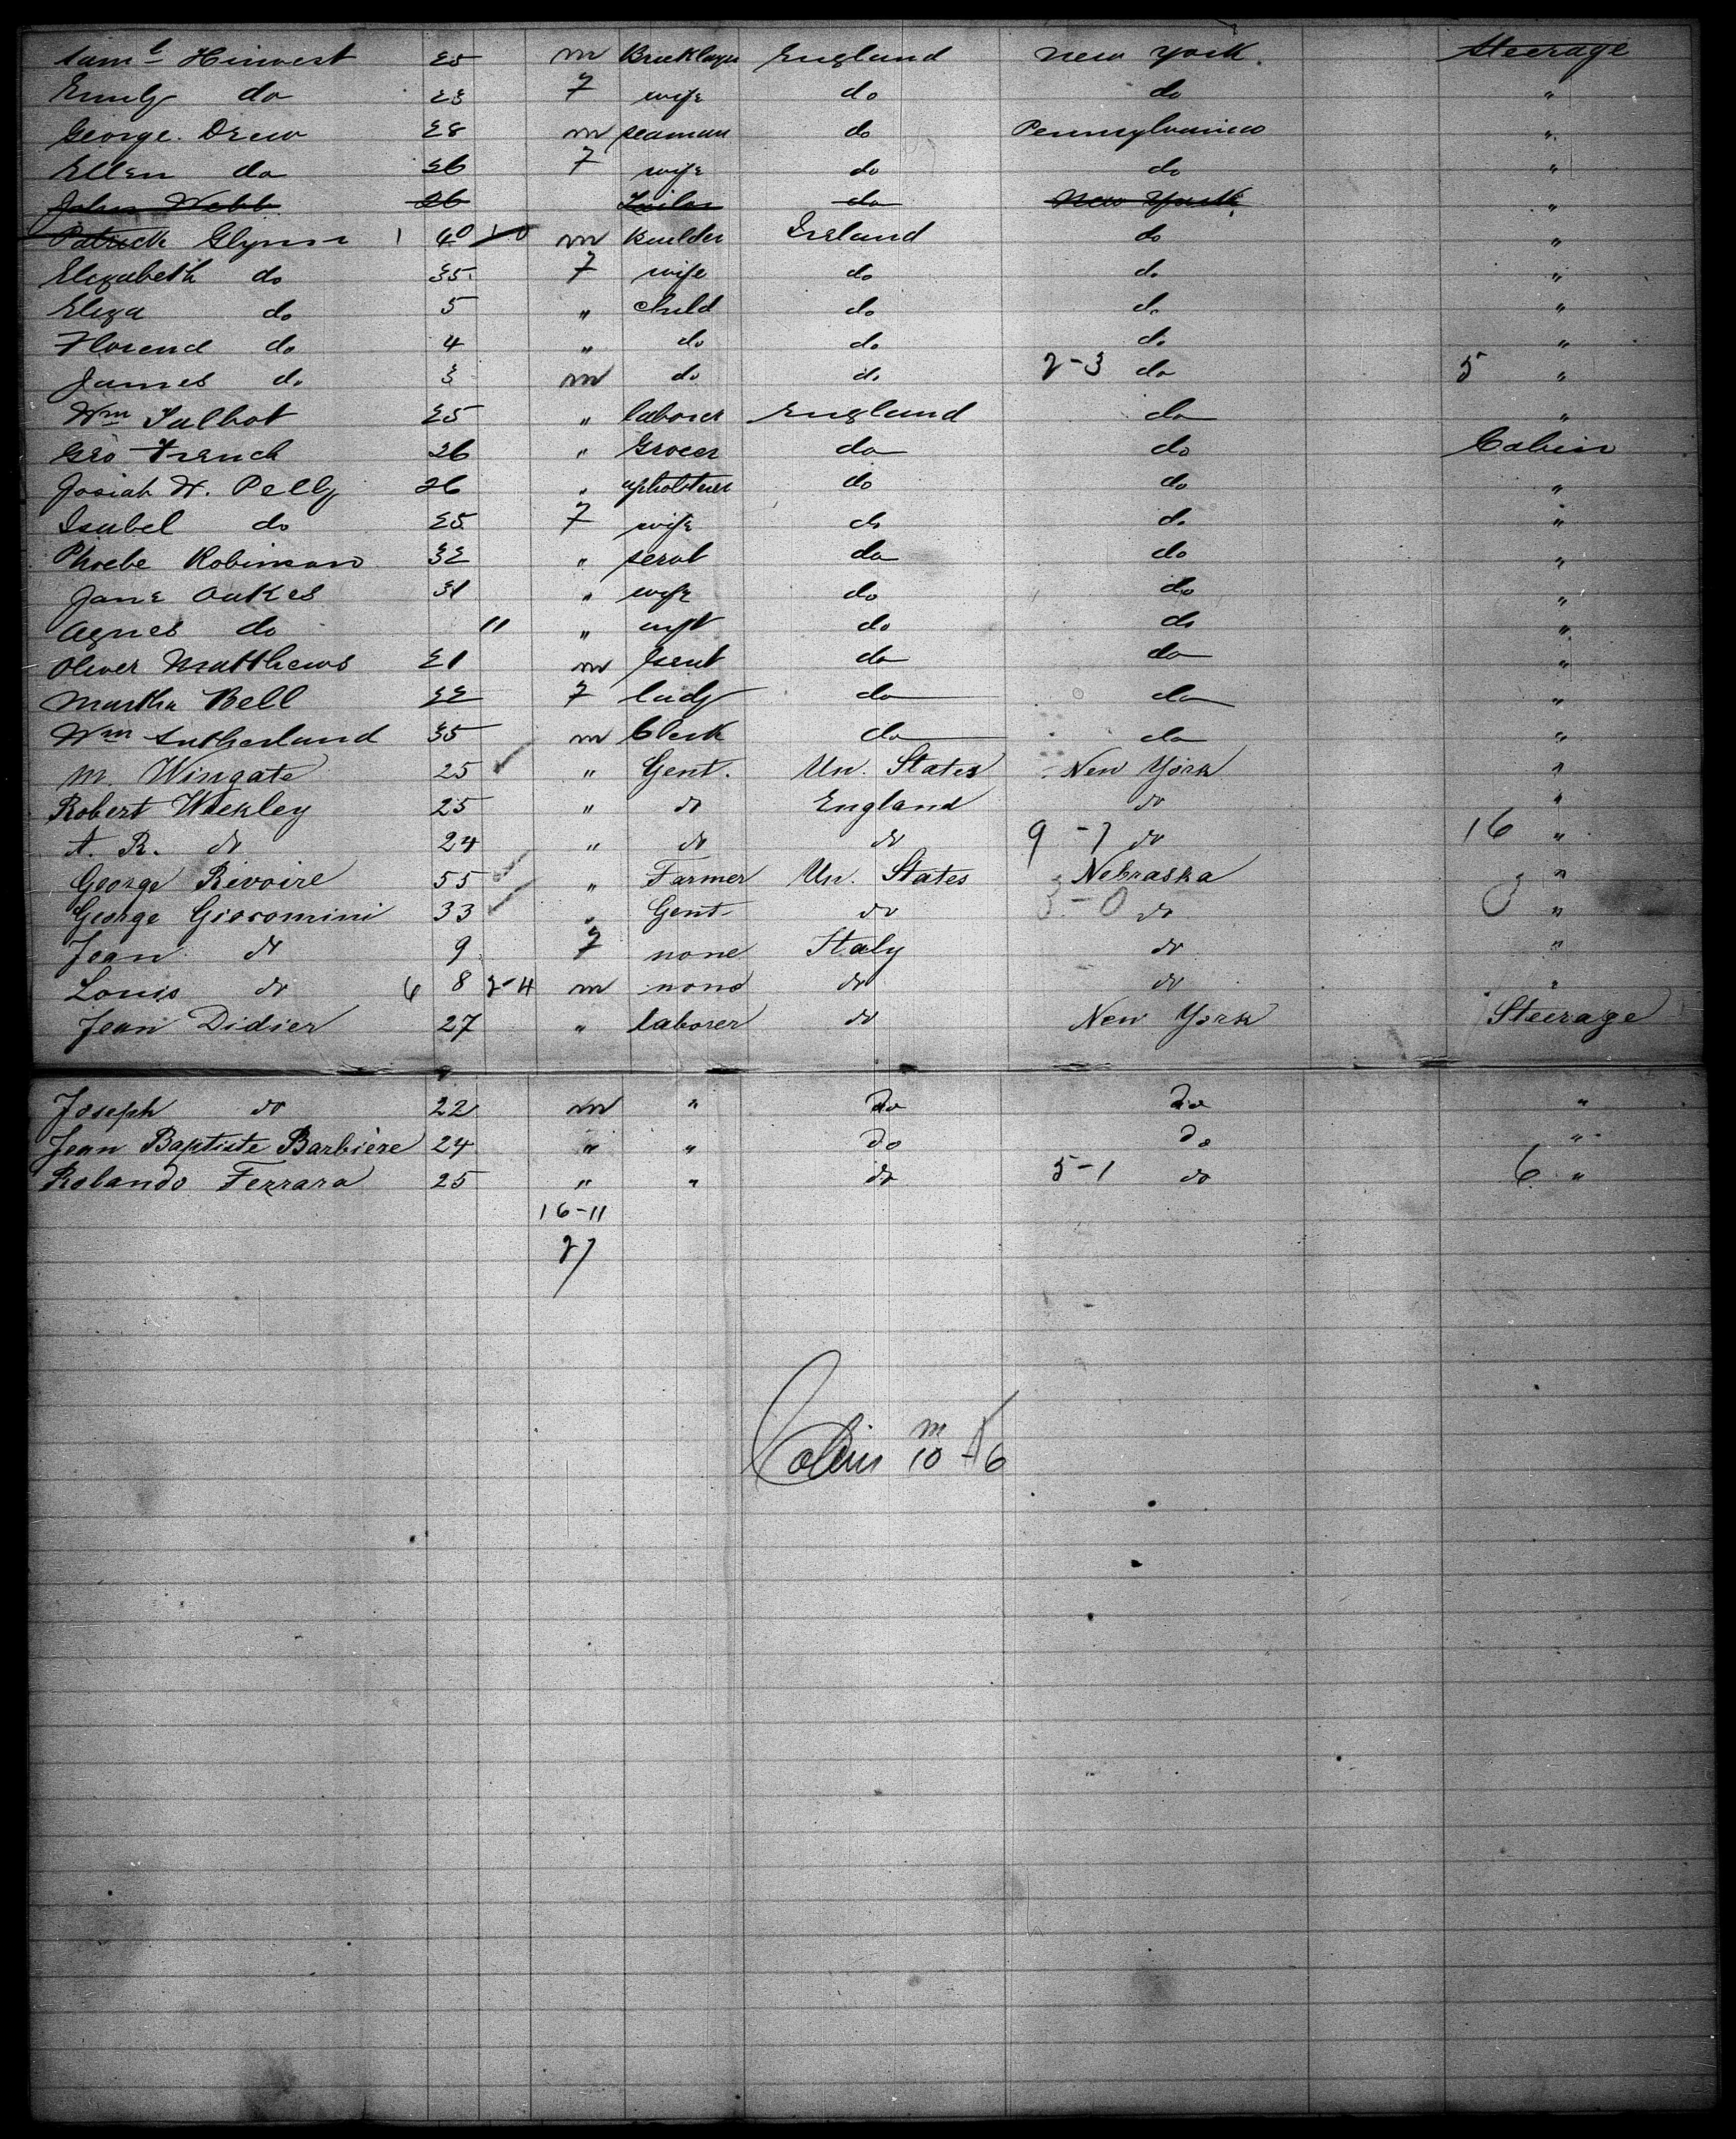 Saml Hinvest 25 m Bricklayer England New York. Steerage
Emily do 23 F wife do do "
George Drew 28 m seaman do Pennsylvania "
Ellen do 26 F wife do do "
John Webb 26 Tailor do New York "
Patrick Glynn 1 40 1-0 m Builder Ireland do "
Elizabeth do 35 F wife do do "
Eliza do 5 " child do do "
Florence do 4 " do do do "
James do 3 m do do 2-3 do 5 "
Wm Talbot 25 " laborer England do "
Geo French 26 " Grocer do do Cabin
Josiah H. Pelly 26 " upholsterer do do "
Isabel do 25 F wife do do "
Phoebe Robinson 32 " servt do do "
Jane Oakes 31 " wife do do "
Agnes do 11 " inft do do "
Oliver Matthews 21 m Gent do do "
Martha Bell 22 F lady do do "
Wm Sutherland 35 m Clerk do do "
M. Wingate 25 " Gent. Un. States New York "
Robert Weekley 25 " do England do "
A. R. do 24 " do do 9-7 do 16 "
George Revoire 55 " Farmer Un. States Nebraska "
George Giacomini 33 " Gent do 3-0 do 3 "
Jean do 9 F none Italy do "
Louis do 6 8 2-4 m none do do "
Jean Didier 27 " laborer do New York Steerage
Joseph do 22 m " do do "
Jean Baptiste Barbière 24 " " do do "
Rolando Ferrara 25 " " do 5-1 do 6 "
16-11
27
Cabin m 10 - F 6